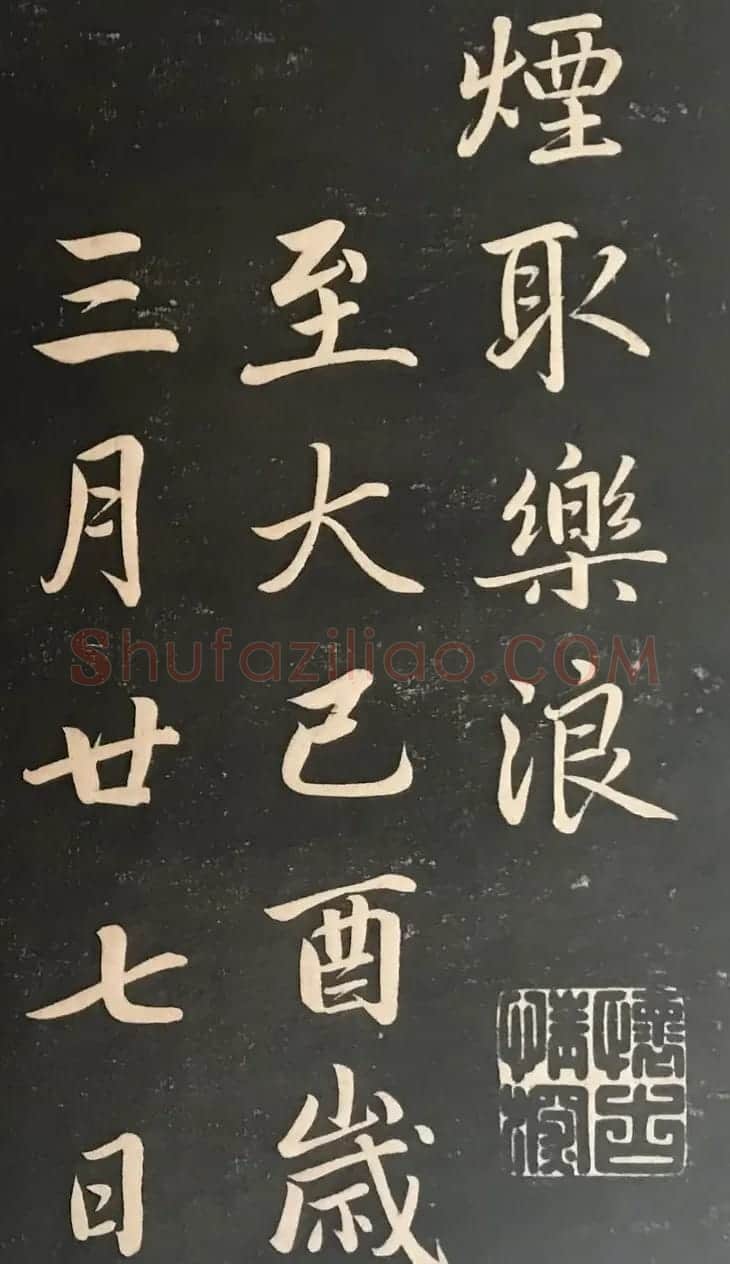 煙取樂浪
至大己酉歲
三月廿七日
Shufaziliao.COM